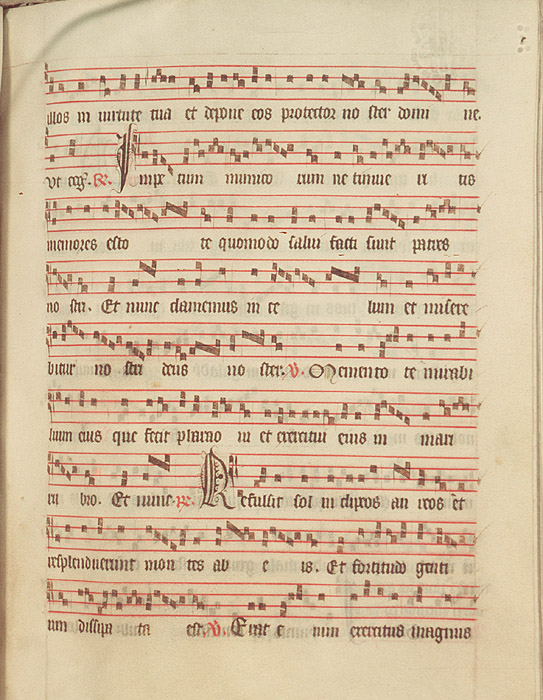 illos in virtute tua et depone eos protector no ster domi ne.
ut cog. R. Impe tum inimico rum ne timue ri tis
memores esto te quomodo salui facti sunt patres
no stri. Et nunc clamemus in ce lum et misere
bitur no stri deus no ster. V. Memento te mirabi
lium eius que fecit pharao ni et exercitui eius in mari
ru bro. Et nunc R. Refulsit sol in clipeos au reos et
resplenduerunt mon tes ab e is. Et fortitudo genti
um dissipa ta est. V. Erat e nim exercitus magnus